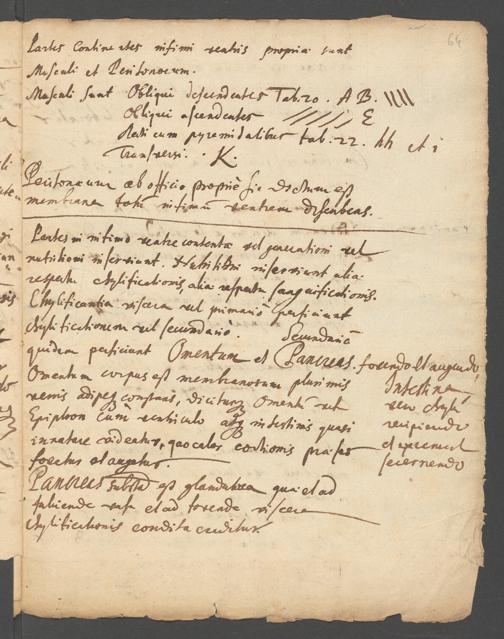 64
Partes continentes infimi ventris propriæ sunt
Musculi et Peritonæum.
Musculi sunt Obliqui descendentes Tab. 20. A B.
Obliqui ascendentes E
Recti cum pyramidalibus tab. 22. hh et i
Transversi. K.
Peritonæum ab officio propriè sic dictum est
membrana totum infimum ventrem
Partes in infimo ventre contentæ vel generationi vel
nutritioni inserviunt. Nutritioni inserviunt alia
respectu chylificationis alia respectu sanguificationis.
Chylificantia viscera vel primariò perficiunt
chylificationem vel secundariò. Secundariò
quidem perficiunt Omentum et Pancreas. fovendo et augendo,
Omentum corpus est membranosum plurimis
venis adipe constans, dicitur Omentum vel
Epiploon cum ventriculo atque intestinis quasi
innatare videatur, quo calor coctionis
fovetur et augetur.
Intestina
vero chylum
recipiendo
et
secernendo
Pancreas est glandulosa quæ et ad
et ad fovenda viscera
chylificationis condita creditur.